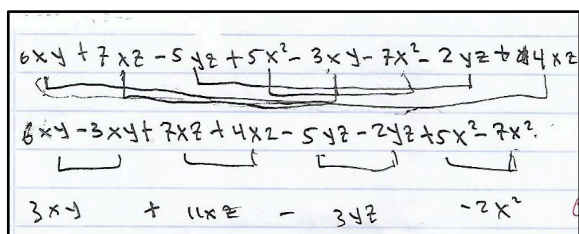 6xy + 7xz - 5yz + 5x² - 3xy - 7x² - 2yz + 4xz
6xy - 3xy + 7xz + 4xz - 5yz - 2yz + 5x² - 7x².
3xy + 11xz - 3yz - 2x²